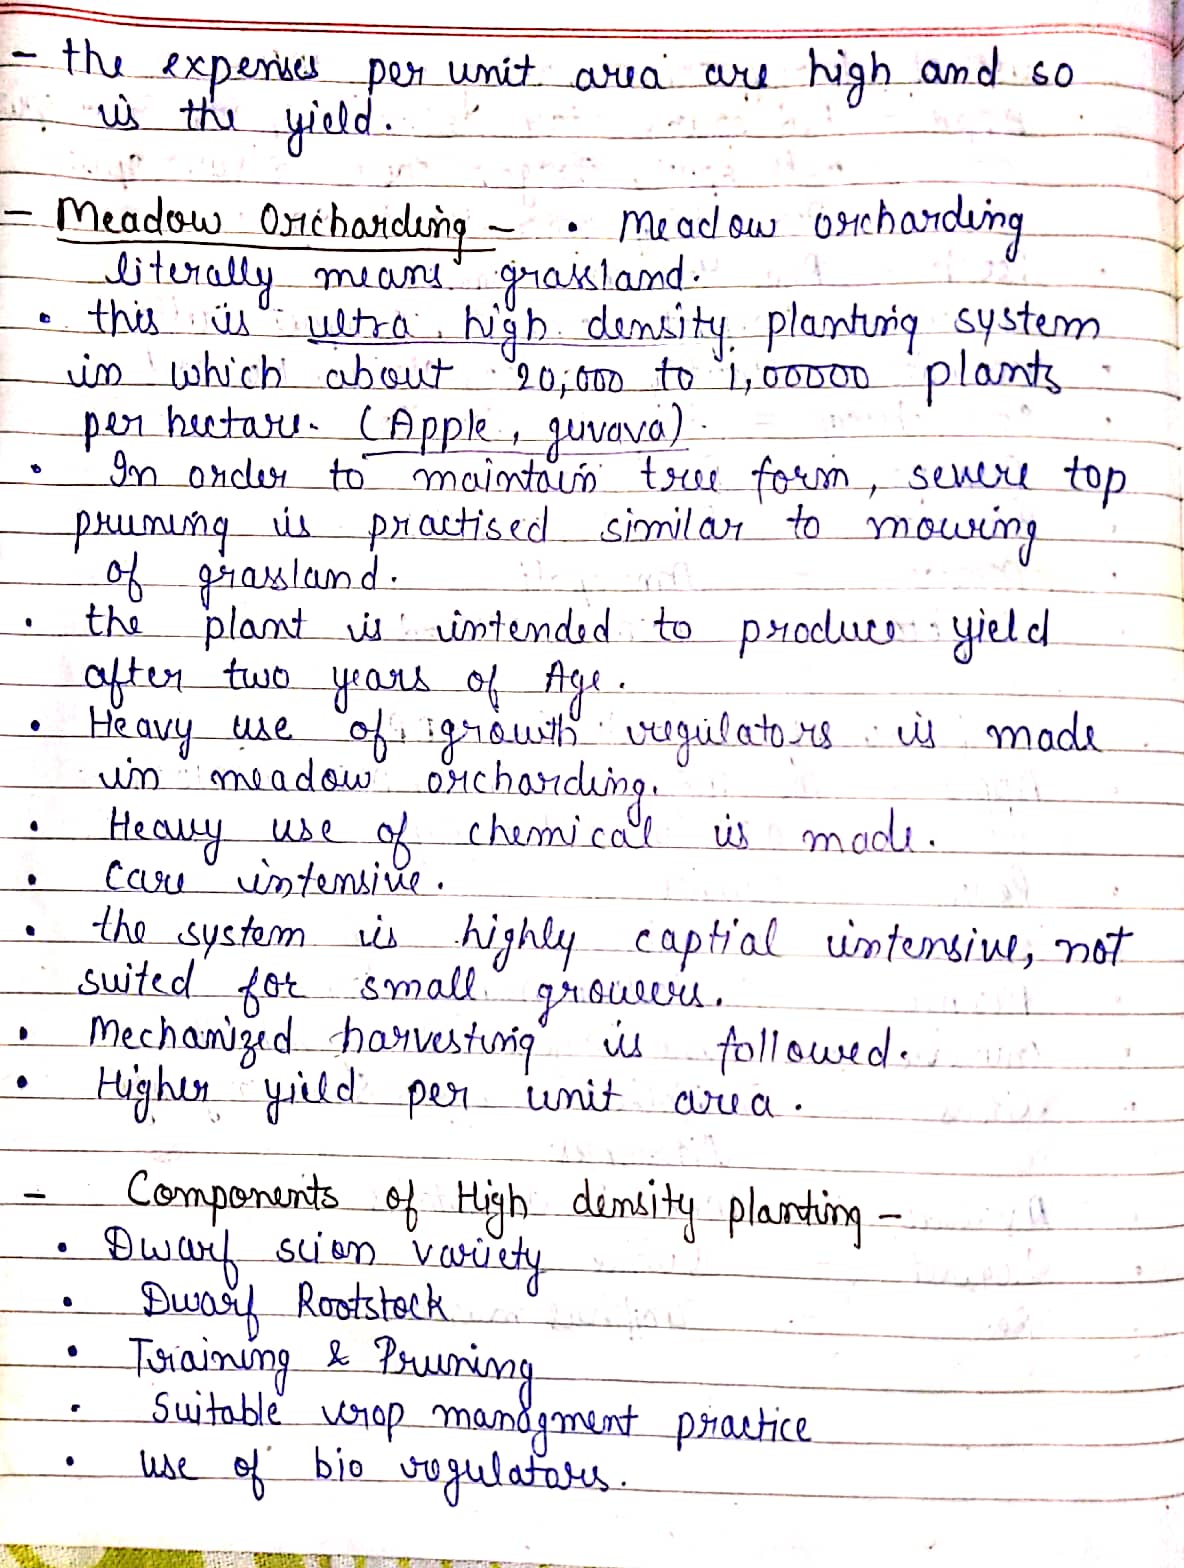 - the expenses per unit area are high and so
is the yield.
- Meadow Orcharding - • Meadow orcharding
literally means grassland.
• this is ultra high density planting system
in which about 20,000 to 1,00000 plants
per hectare. (Apple, guvava)
• In order to maintain tree form, severe top
pruning is practised similar to mowing
of grassland.
• the plant is intended to produce yield
after two years of Age.
• Heavy use of growth regulators is made
in meadow orcharding.
• Heavy use of chemical is made.
• Care intensive.
• the system is highly captial intensive, not
suited for small growers.
• Mechanized harvesting is followed.
• Higher yield per unit area.
- Components of High density planting -
• Dwarf scion variety
• Dwarf Rootstock
• Training & Pruning
• Suitable crop managment practice
• use of bio regulators.